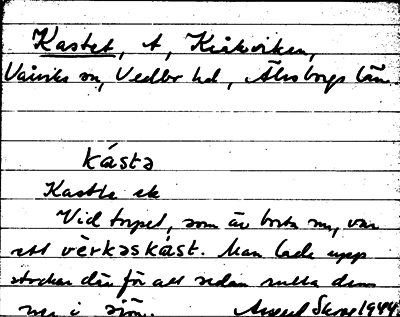 Kastet, t, Kråkviken,
sn, Vedbo hd, Älvsborgs län.
kástə
Kastle sk
Vid torpet, som är borta nu, var
ett vèrkəskást. Man lade upp
stockar där för att sedan rulla dem
ner i sjön. 1944